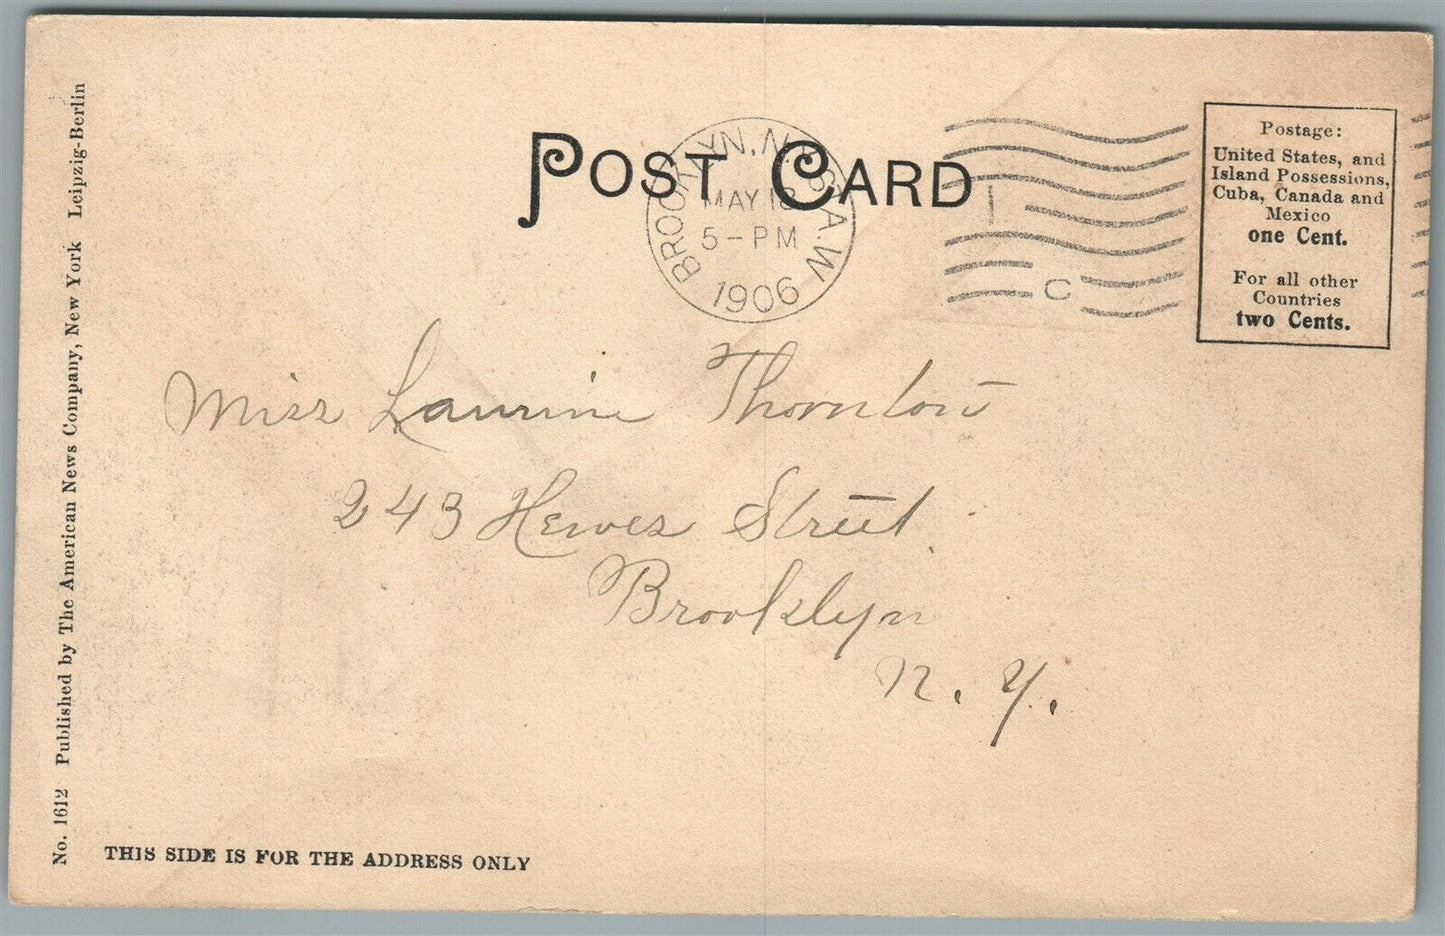 POST CARD
BROOKLYN, N.Y. STA. W
MAY 18
5-PM
1906
C
Postage:
United States, and
Island Possessions,
Cuba, Canada and
Mexico
one Cent.
For all other
Countries
two Cents.
Miss Laurine Thornton
243 Hewes Street.
Brooklyn
N. Y.
No. 1612 Published by The American News Company, New York Leipzig-Berlin
THIS SIDE IS FOR THE ADDRESS ONLY